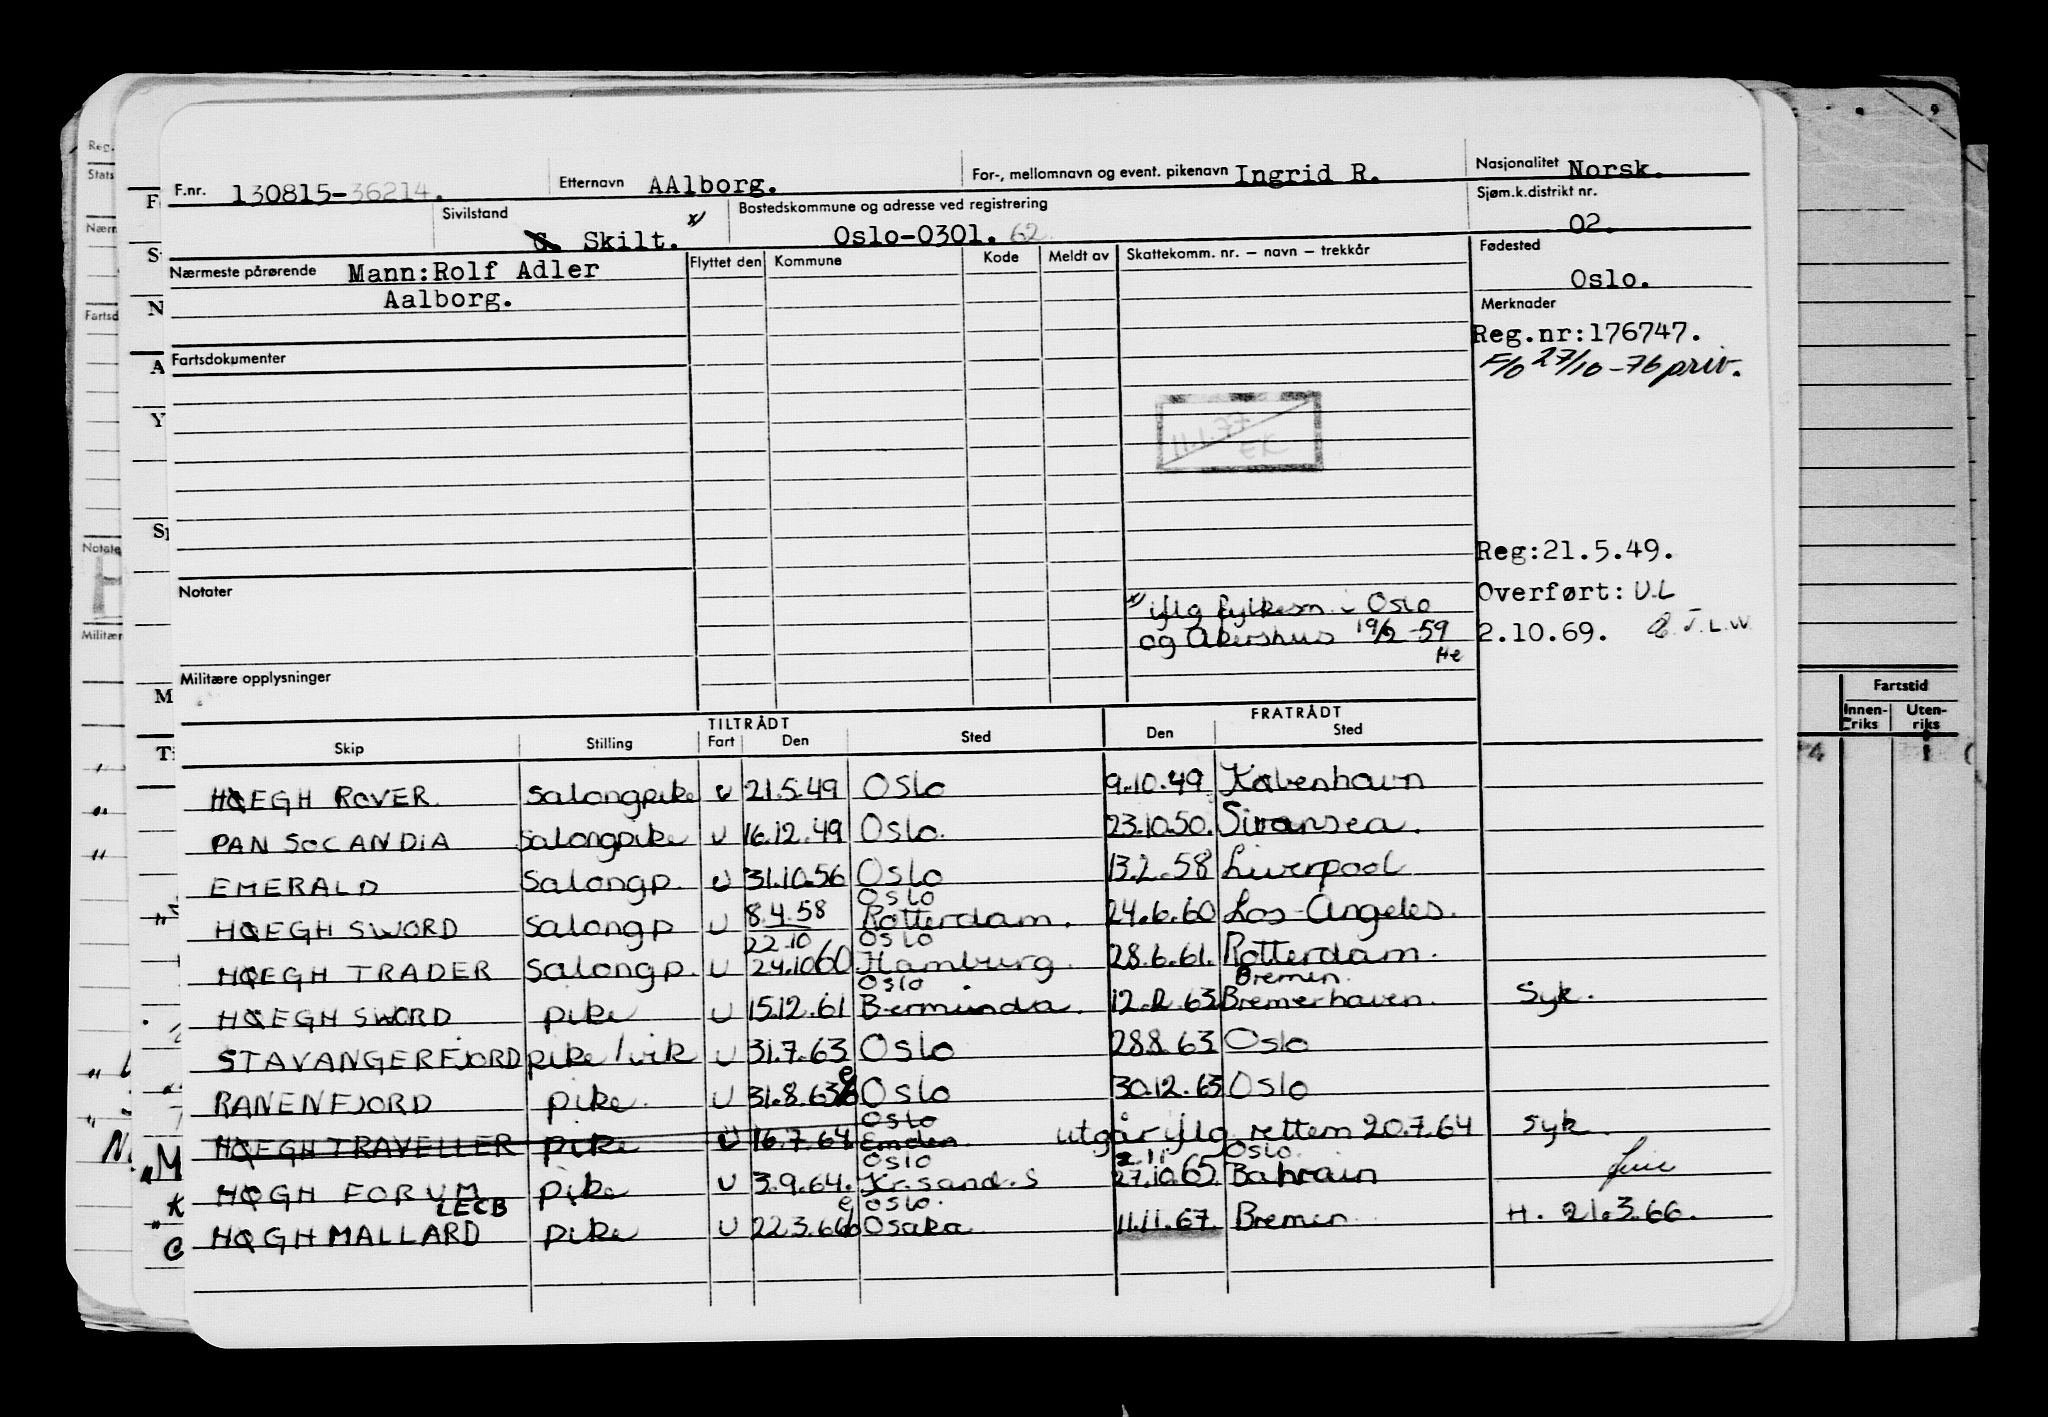 F.nr. 130815-36214. Etternavn AAlborg. For-, mellomnavn og event. pikenavn Ingrid R. Nasjonalitet Norsk.
Sivilstand G. Skilt. x) Bostedskommune og adresse ved registrering Oslo-0301. 62 Sjøm.k.distrikt nr. 02.
Nærmeste pårørende Mann:Rolf Adler
Aalborg.
Flyttet den Kommune Kode Meldt av Skattekomm. nr. – navn – trekkår
Fødested
Oslo.
Merknader
Reg.nr:176747.
F/o 27/10-76 priv.
Fartsdokumenter
11.1.77
EK
Reg:21.5.49.
Overført: U.L
2.10.69. J.L.W.
Notater
x) iflg fylkesm. i Oslo
og Akershus 19/2-59
He
Militære opplysninger
TILTRÅDT FRATRÅDT
Skip Stilling Fart Den Sted Den Sted
HØEGH ROVER Salongpike U 21.5.49 Oslo 9.10.49 København
PAN SCANDIA Salongpike U 16.12.49 Oslo. 23.10.50. Swansea.
EMERALD Salongp. U 31.10.56 Oslo 13.2.58 Liverpool
Oslo
HØEGH SWORD Salongp U 8.4.58 Rotterdam. 24.6.60 Los-Angeles.
22.10 Oslo
HØEGH TRADER Salongp. U 24.10 60 Hamburg. 28.6.61. Rotterdam.
Oslo Bremen.
HØEGH SWORD pike U 15.12.61 Bermunda. 12.2.63 Bremerhaven. Syk.
STAVANGERFJORD pike/vik U 31.7.63 Oslo 28.8.63 Oslo
RANENFJORD pike. U 31.8.63 Oslo 30.12.63 Oslo
Oslo
HØEGH TRAVELLER pike U 16.7.64 Emden. utgår iflg rettem 20.7.64 Syk.
Oslo 2.11 Oslo.
HØGH FORUM pike U 3.9.64. Kr.sand.S 27.10.65. Bahrain
LECB Oslo.
HØGH MALLARD pike U 22.3.66 Osaka 11.11.67. Bremen H. 21.3.66.
Fartstid
Innen-
riks
Uten-
riks
Reg.
Stats
Nærm
Fartsd
Notate
Militær